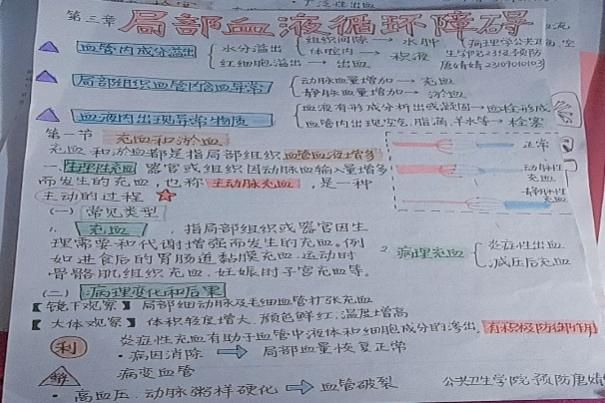 第三章 局部血液循环障碍
血管内成分溢出 水分溢出 组织间隙 → 水肿
体腔内 → 积液
红细胞溢出 → 出血
局部组织血管内含血异常 动脉血量增加 → 充血
静脉血量增加 → 淤血
血液内出现异常物质 血液有形成分析出或凝固 → 血栓形成
血管内出现空气、脂滴、羊水等 → 栓塞
第一节 充血和淤血
充血和淤血都是指局部组织血管血液增多
正常
动脉性充血
静脉性充血
一、生理性充血 器官或组织因动脉血输入量增多
而发生的充血,也称主动脉充血,是一种
主动的过程
(一)常见类型
1. 充血,指局部组织或器官因生
理需要和代谢增强而发生的充血。例
如进食后的胃肠道黏膜充血、运动时
骨骼肌组织充血、妊娠时子宫充血等。
2. 病理充血 炎症性出血
减压后充血
(二)病理变化和后果
【镜下观察】局部细动脉及毛细血管扩张充血
【大体观察】体积轻度增大、颜色鲜红、温度增高
利 炎症性充血有助于血管中液体和细胞成分的渗出,有积极防御作用
·病因消除 ⇒ 局部血量恢复正常
病变血管
·高血压、动脉粥样硬化 ⇒ 血管破裂
公共卫生学院 预防唐婧